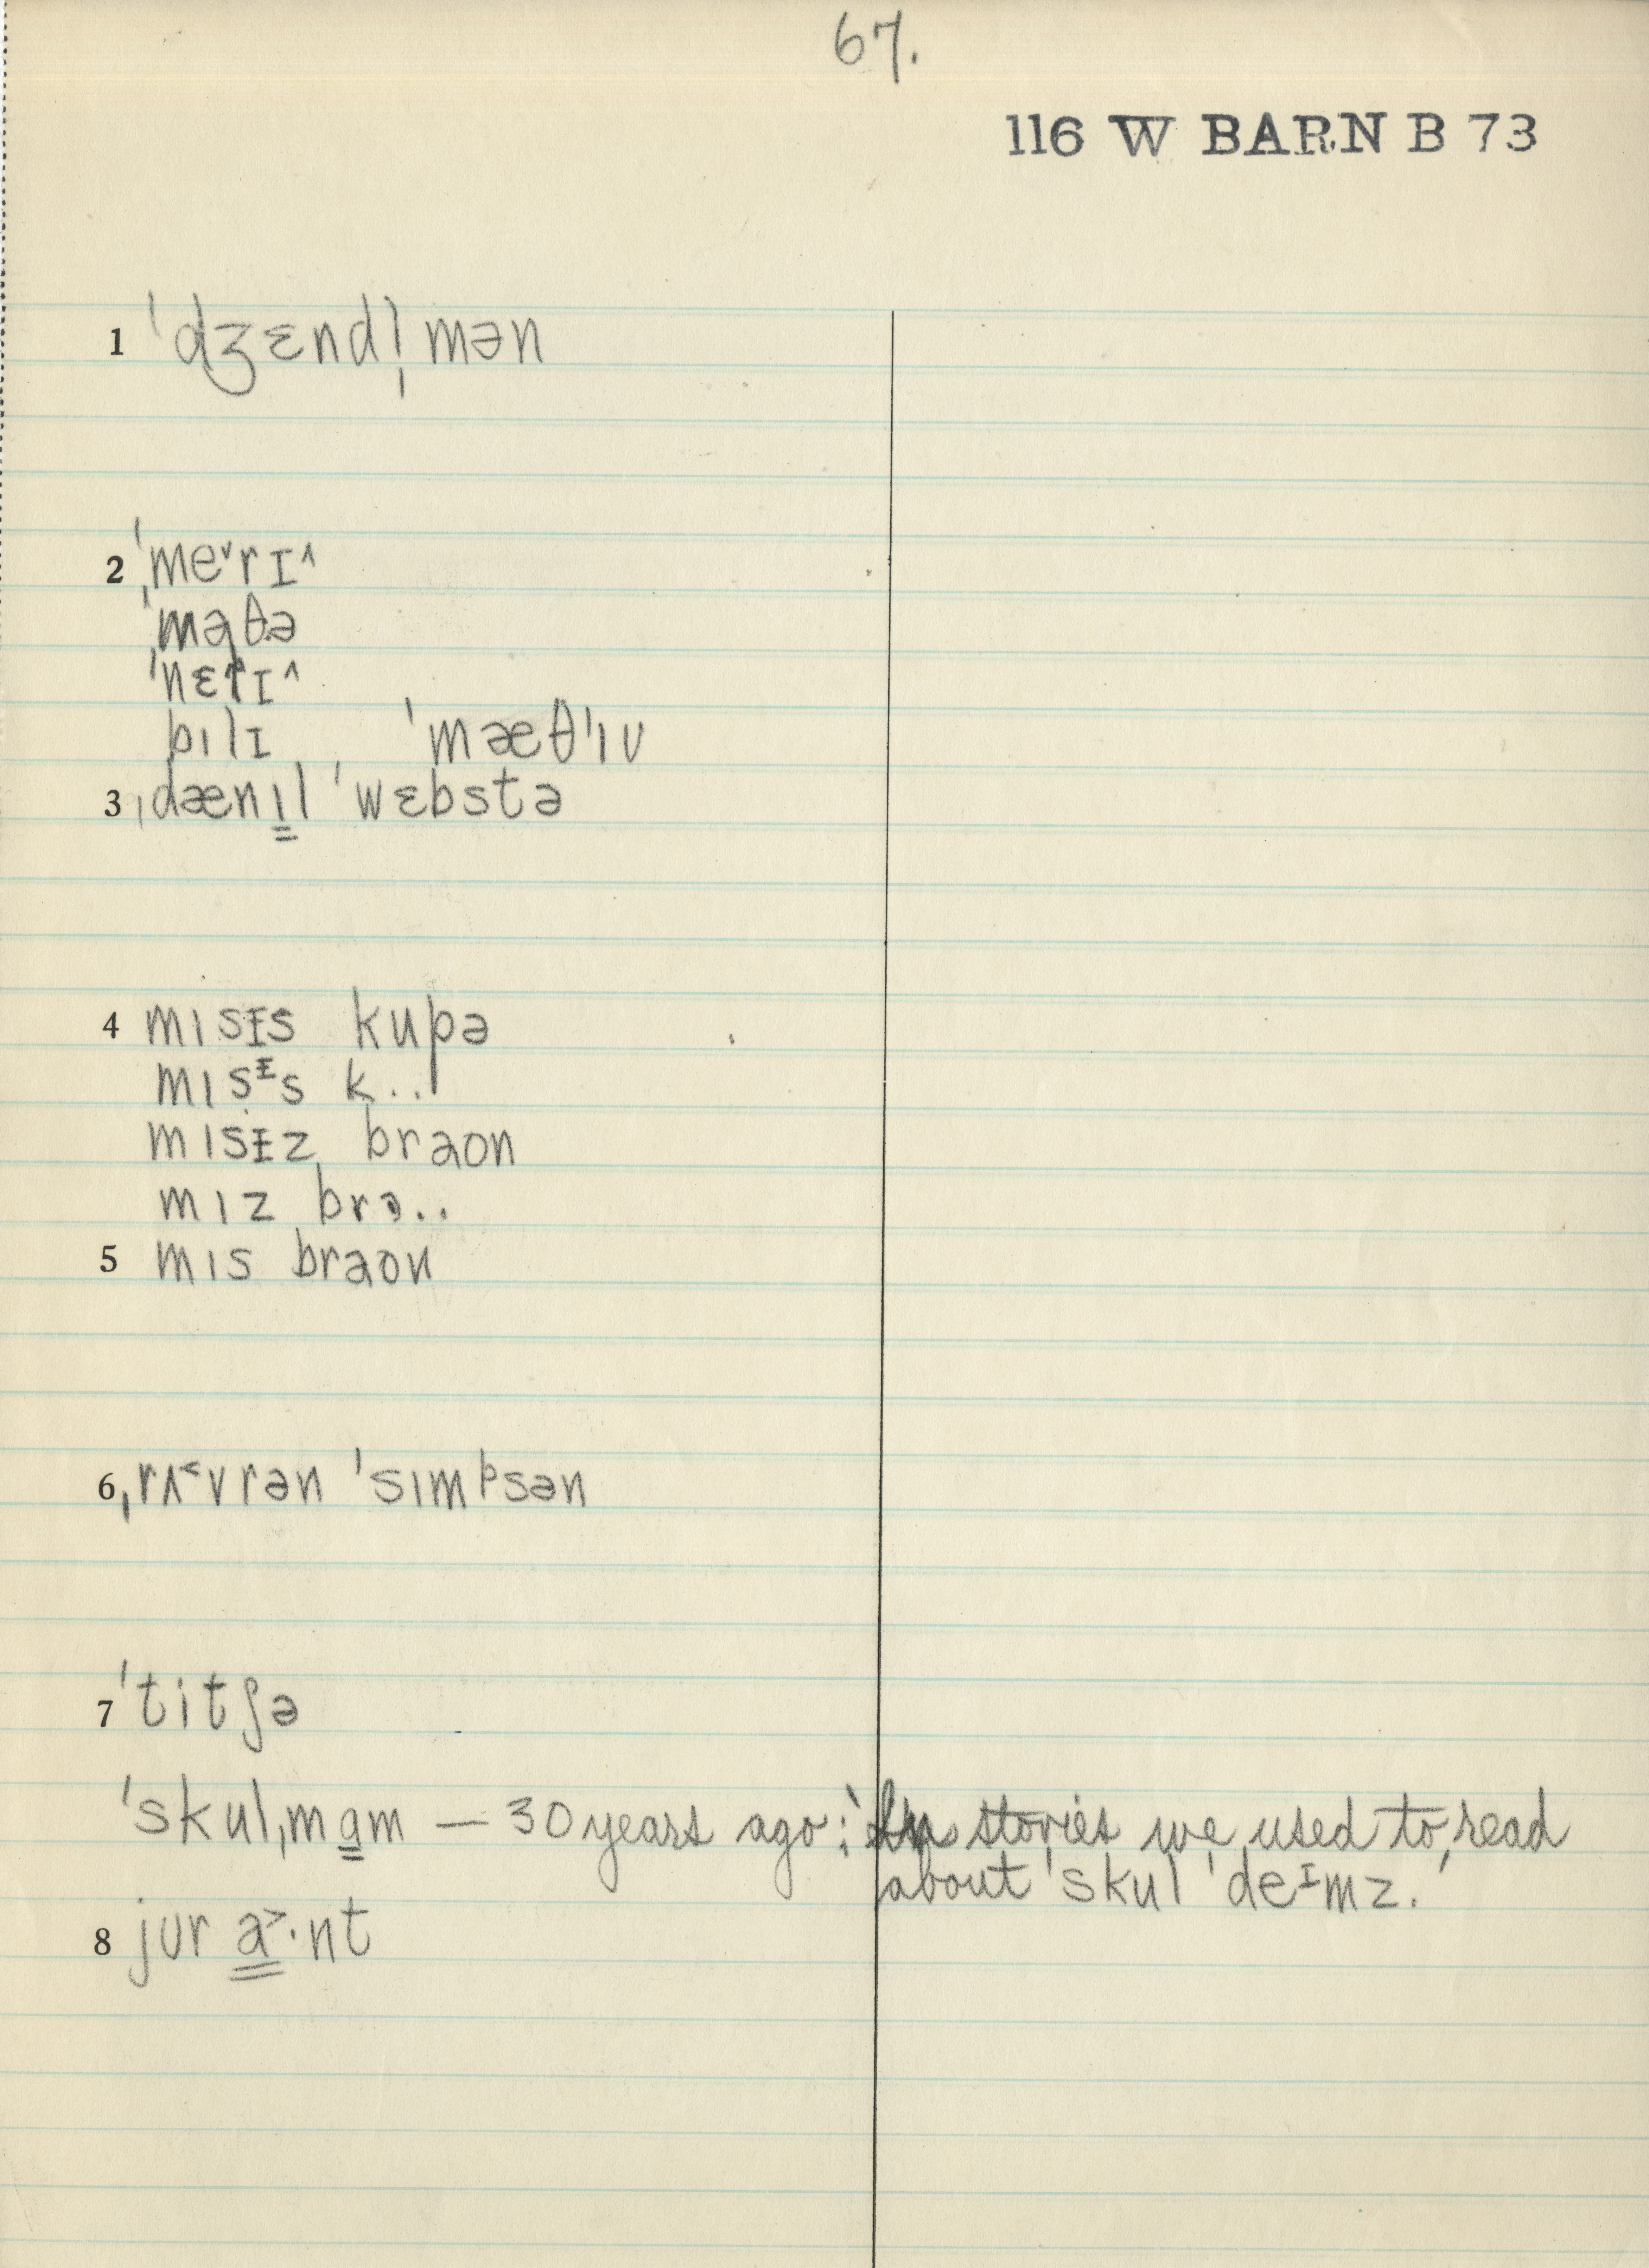 67.
116 W BARN B 73
1 ˈdʒɛndl̩mən
2 ˈme˅rɪ^
ˈmaθə
ˈnɛrɪ^
bɪlɪ ˈmæθˈɪu
3 ˌdænɪ̳l ˈwɛbstə
4 mɪsɪs kupə
mɪsᵻs k..
mɪsᵻz braon
mɪz brə..
5 mɪs braon
6 ˌrʌ˂vrən ˈsɪmᵖsən
7 ˈtitʃə
ˈskulˌma̳m — 30 years ago: 'In stories we used to read
about ˈskul ˈdeᶦmz.'
8 jur a̳˃·nt